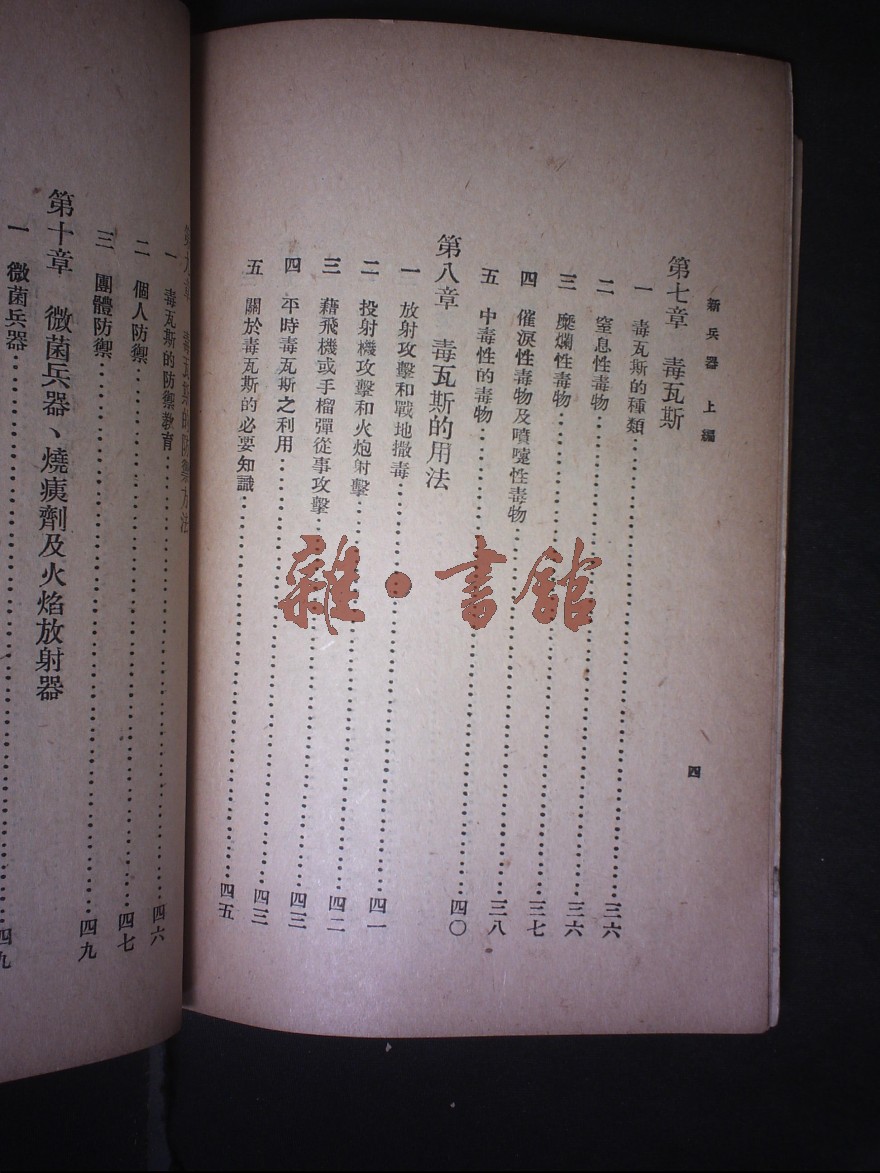 新兵器 上編
第七章 毒瓦斯
一 毒瓦斯的種類……三六
二 窒息性毒物……三六
三 糜爛性毒物……三七
四 催淚性毒物及噴嚏性毒物……三八
五 中毒性的毒物……四〇
第八章 毒瓦斯的用法
一 放射攻擊和戰地撒毒……四一
二 投射機攻擊和火炮射擊……四二
三 藉飛機或手榴彈從事攻擊……四三
四 平時毒瓦斯之利用……四三
五 關於毒瓦斯的必要知識……四五
四
第九章 毒瓦斯的防禦方法
一 毒瓦斯的防禦教育……四六
二 個人防禦……四七
三 團體防禦……四九
第十章 微菌兵器、燒痍劑及火焰放射器
一 微菌兵器……四九
雜·書館